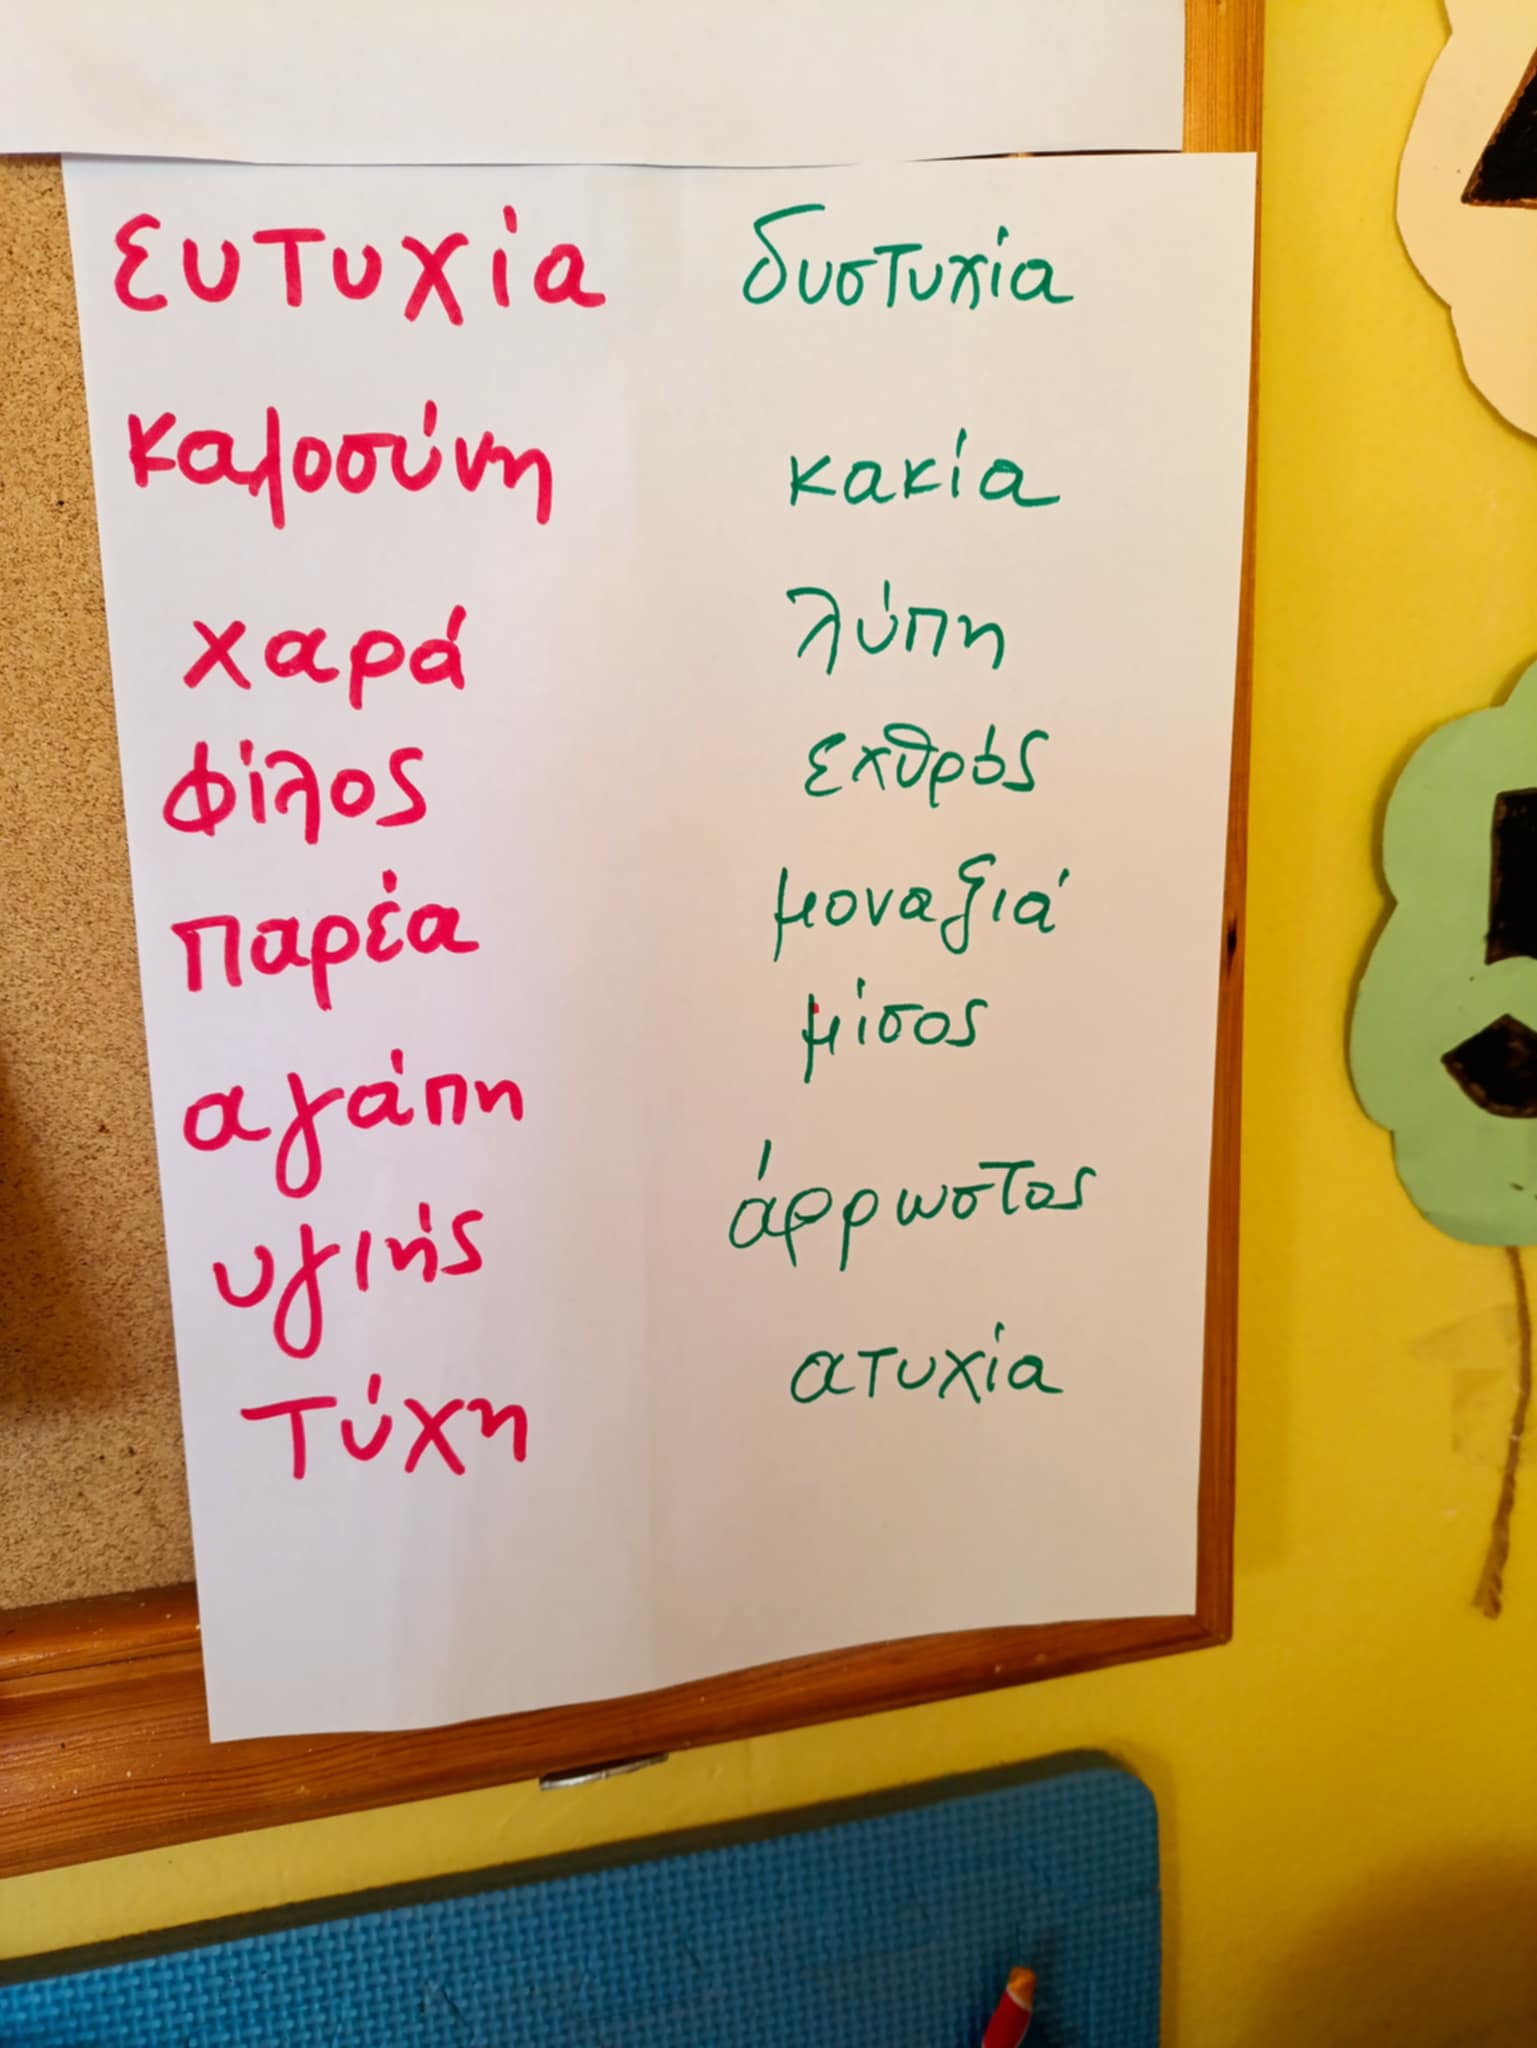 ευτυχία δυστυχία
καλοσύνη κακία
χαρά λύπη
φίλος εχθρός
παρέα μοναξιά
αγάπη μίσος
υγιής άρρωστος
τύχη ατυχία